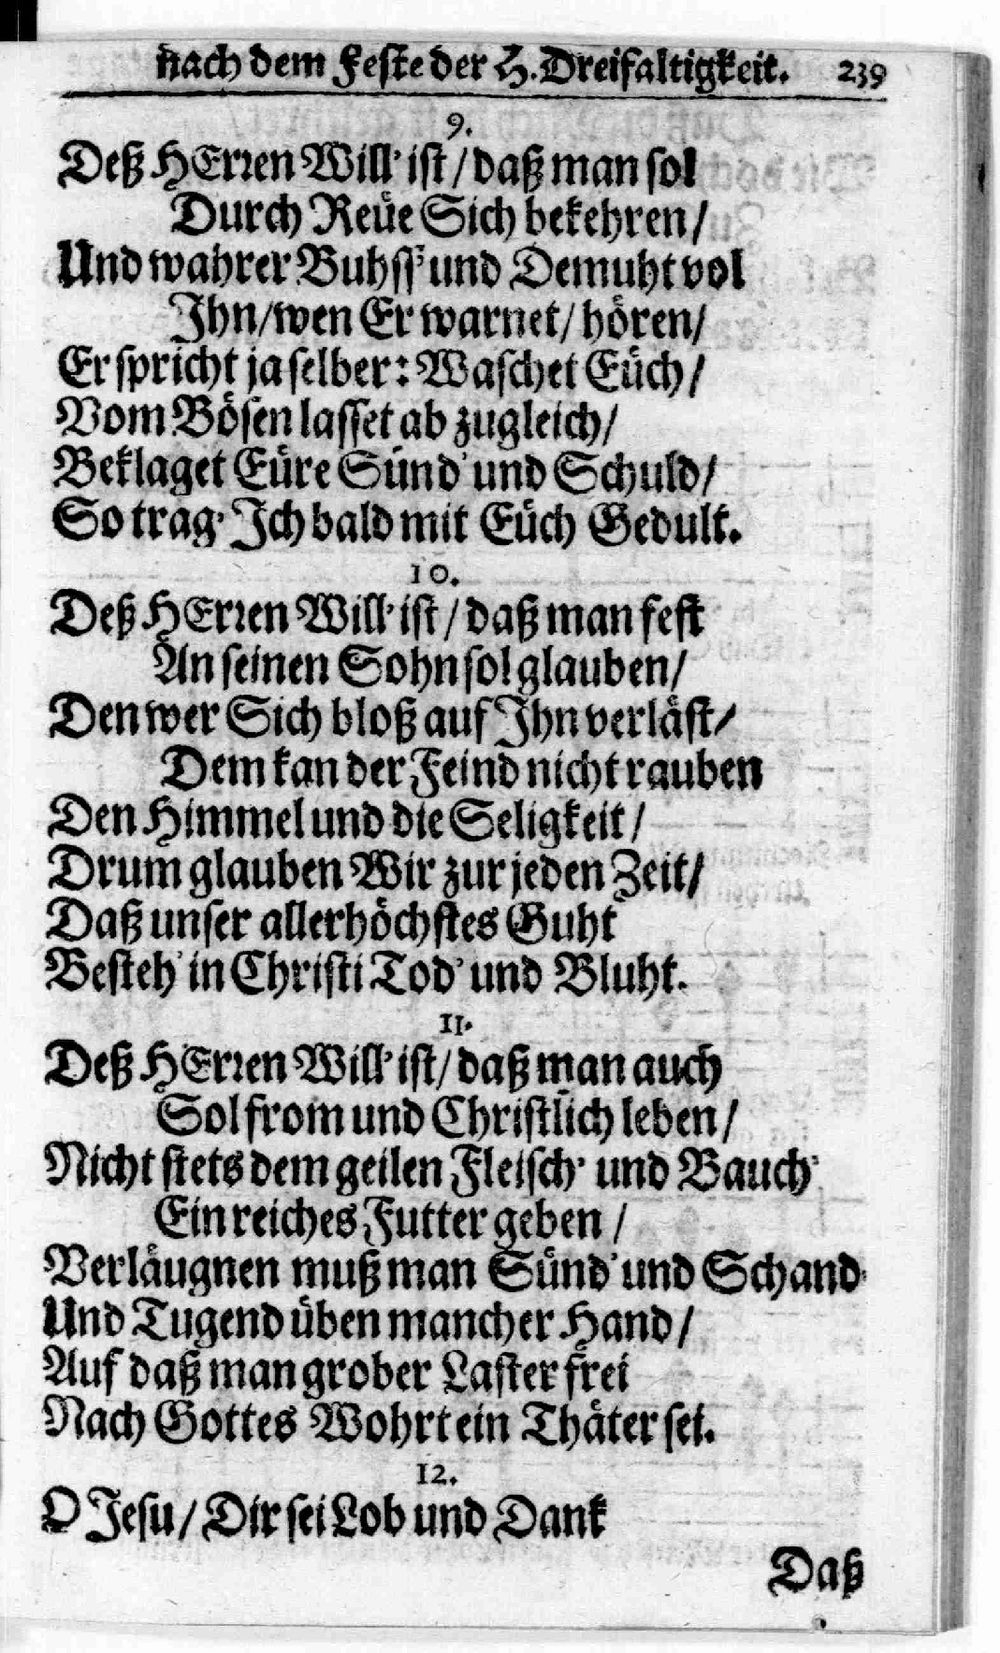 nach dem Feste der H. Dreifaltigkeit. 239
9.
Deß HErren Will' ist / daß man sol
Durch Reüe Sich bekehren /
Und wahrer Buhss' und Demuht vol
Ihn / wen Er warnet / hören /
Er spricht ja selber: Waschet Eüch /
Vom Bösen lasset ab zugleich /
Beklaget Eüre Sünd' und Schuld /
So trag' Ich bald mit Eüch Gedult.
10.
Deß HErren Will' ist / daß man fest
An seinen Sohn sol glauben /
Den wer Sich bloß auf Ihn verläst /
Dem kan der Feind nicht rauben
Den Himmel und die Seligkeit /
Drum glauben Wir zur jeden Zeit /
Daß unser allerhöchstes Guht
Besteh' in Christi Tod' und Bluht.
11.
Deß HErren Will' ist / daß man auch
Sol from und Christlich leben /
Nicht stets dem geilen Fleisch' und Bauch'
Ein reiches Futter geben /
Verläugnen muß man Sünd' und Schand'
Und Tugend üben mancher Hand /
Auf daß man grober Laster frei
Nach Gottes Wohrt ein Thäter sei.
12.
O Jesu / Dir sei Lob und Dank
Daß